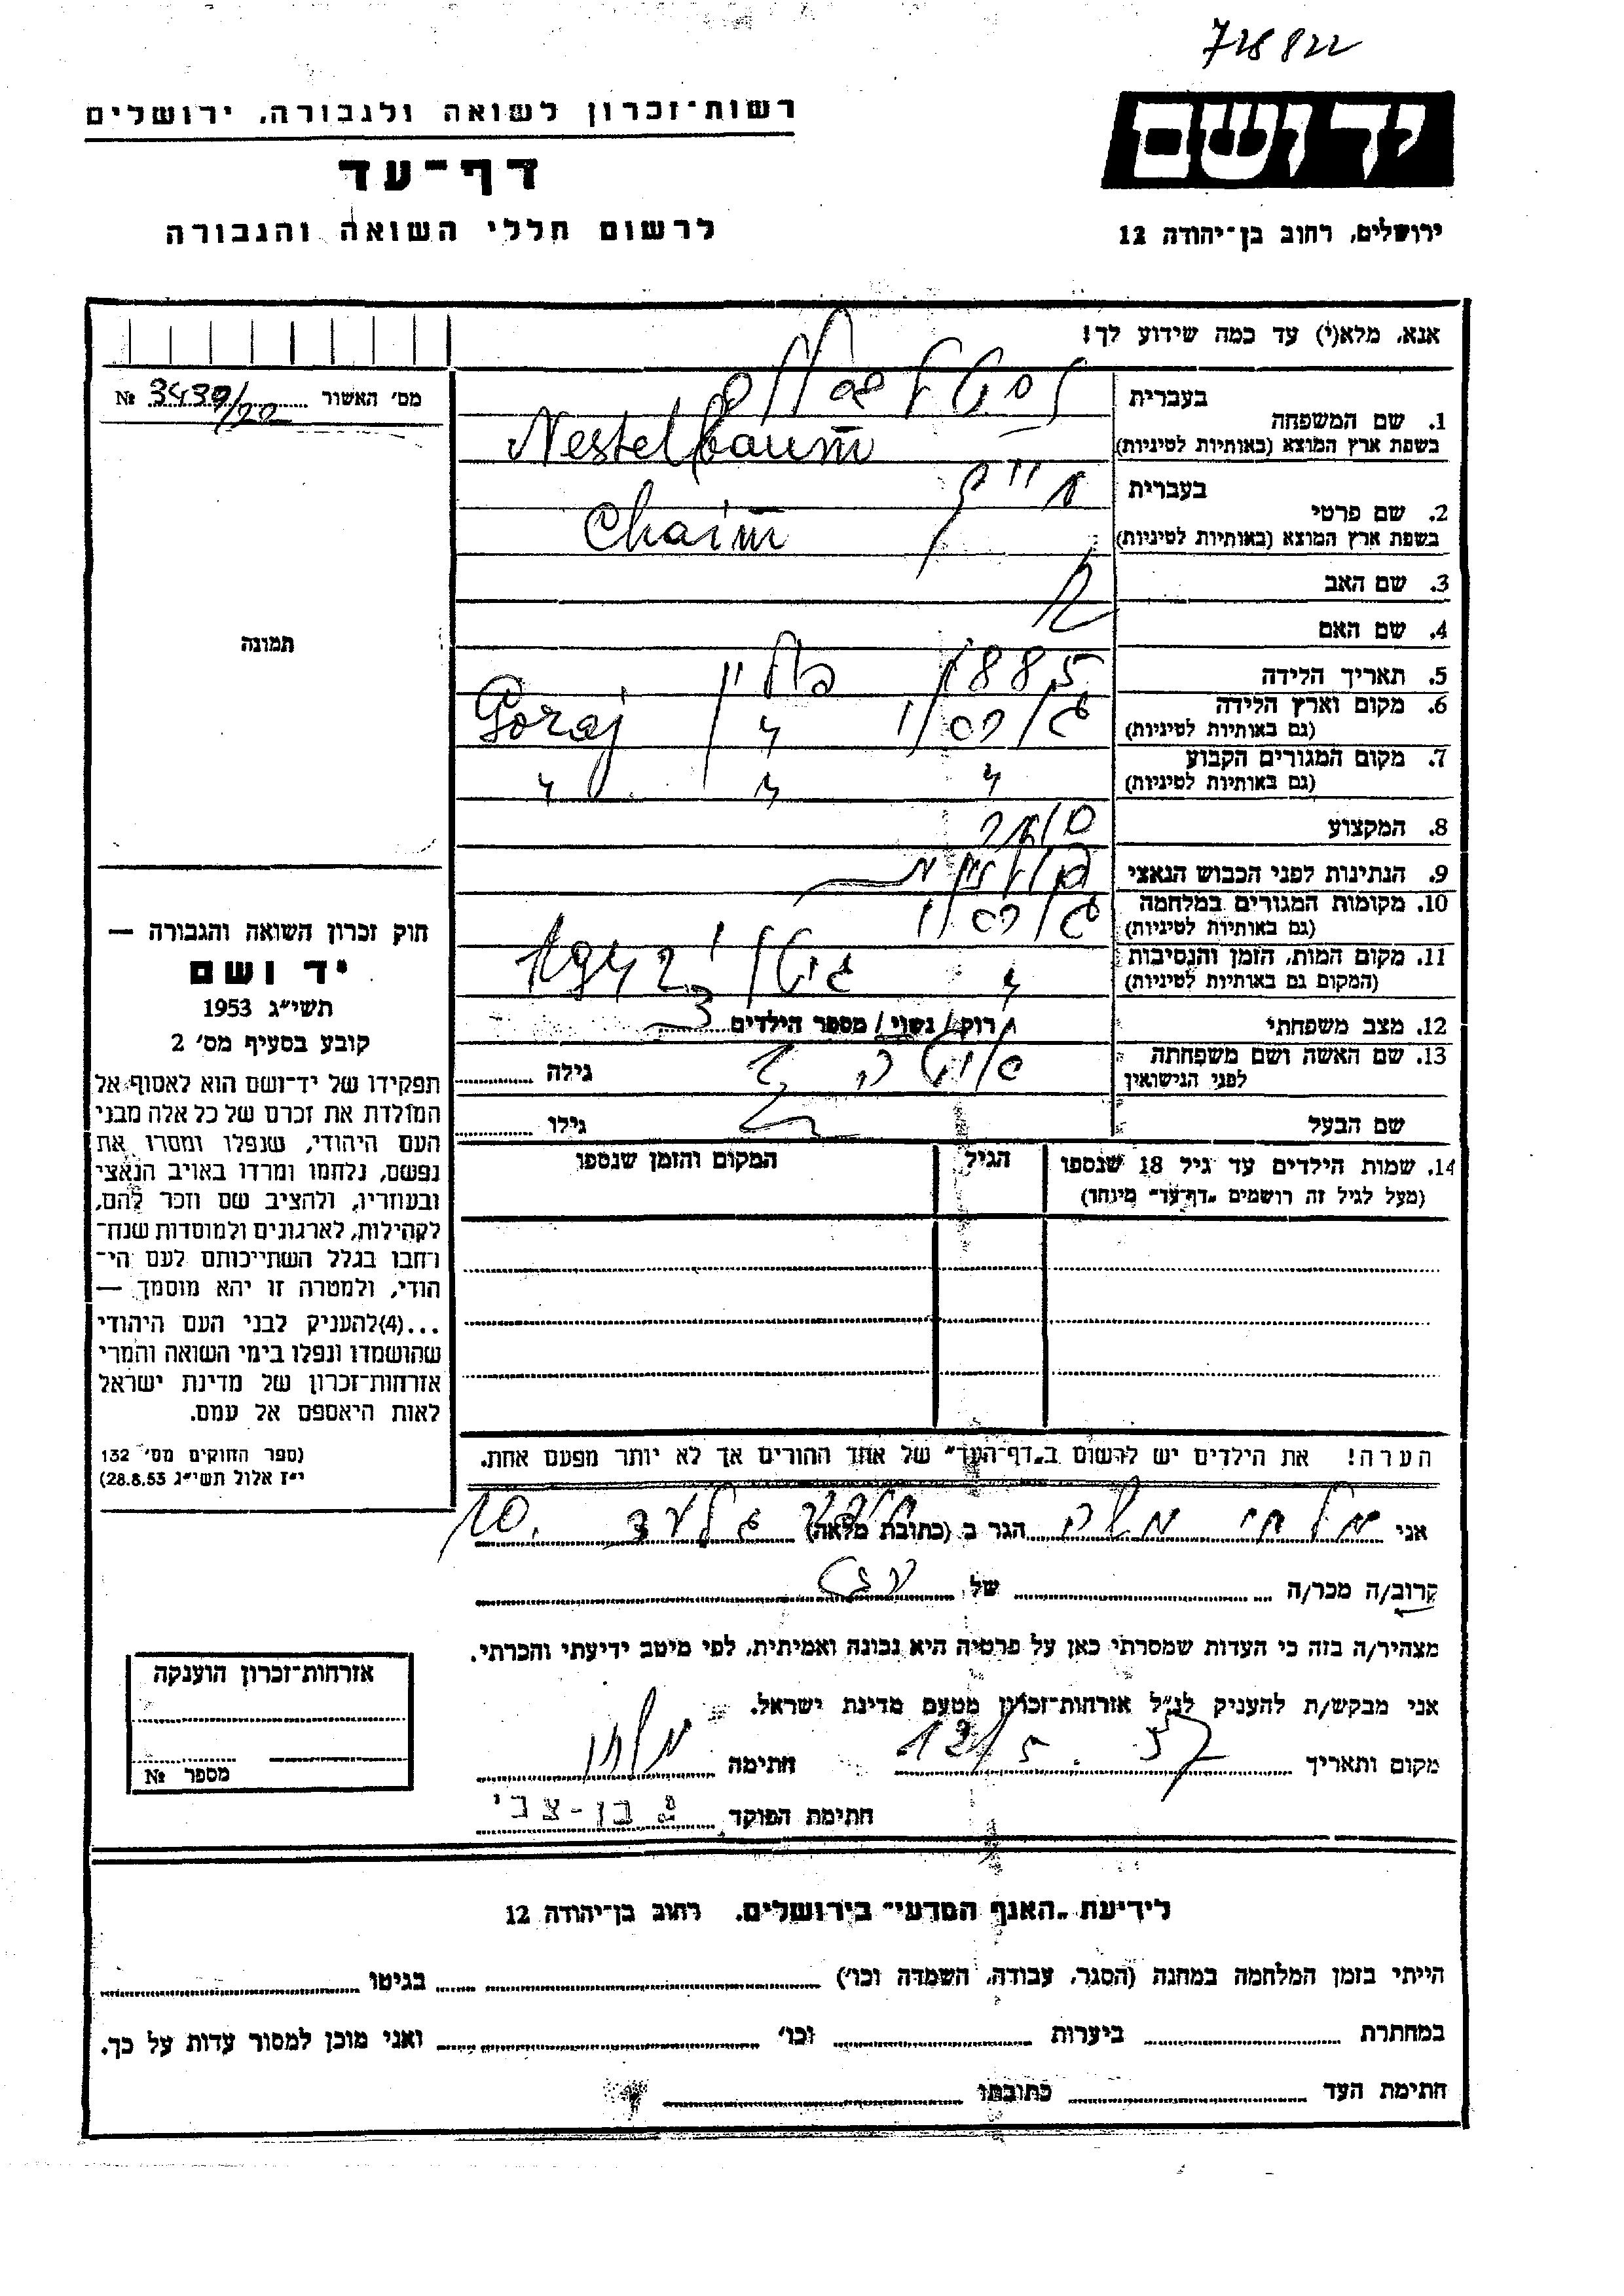 728822
רשות־זכרון לשואה ולגבורה, ירושלים
דף־עד
לרשום חללי השואה והגבורה
יד ושם
ירושלים, רחוב בן־יהודה 12
אנא, מלא(י) עד כמה שידוע לך!
מס׳ האשור № 3439/22
תמונה
1. שם המשפחה
בעברית נסטלבאום
בשפת ארץ המוצא (באותיות לטיניות) Nestelbaum
2. שם פרטי
בעברית חיים
בשפת ארץ המוצא (באותיות לטיניות) Chaim
3. שם האב
4. שם האם
5. תאריך הלידה 1885
6. מקום וארץ הלידה
(גם באותיות לטיניות) Goraj
7. מקום המגורים הקבוע
(גם באותיות לטיניות) " " "
8. המקצוע סוחר
9. הנתינות לפני הכבוש הנאצי פולנית
10. מקומות המגורים במלחמה
(גם באותיות לטיניות)
11. מקום המות, הזמן והנסיבות
(המקום גם באותיות לטיניות)
12. מצב משפחתי רוק/ נשוי/ מספר הילדים 3
13. שם האשה ושם משפחתה
לפני הנישואין
גילה
שם הבעל
גילו
14. שמות הילדים עד גיל 18 שנספו
(מעל לגיל זה רושמים „דף־עד״ מיוחד)
הגיל
המקום והזמן שנספו
הערה! את הילדים יש לרשום ב„דף־העד״ של אחד ההורים אך לא יותר מפעם אחת.
חוק זכרון השואה והגבורה —
יד ושם
תשי״ג 1953
קובע בסעיף מס׳ 2
תפקידו של יד־ושם הוא לאסוף אל
המולדת את זכרם של כל אלה מבני
העם היהודי, שנפלו ומסרו את
נפשם, נלחמו ומרדו באויב הנאצי
ובעוזריו, ולהציב שם וזכר להם,
לקהילות, לארגונים ולמוסדות שנח־
רחבו בגלל השתייכותם לעם הי־
הודי, ולמטרה זו יהא מוסמך —
...(4)להעניק לבני העם היהודי
שהושמדו ונפלו בימי השואה והמרי
אזרחות־זכרון של מדינת ישראל
לאות היאספם אל עמם.
(ספר החוקים מס׳ 132
י״ז אלול תשי״ג 28.8.53)
אני מלחי הגר ב (כתובת מלאה)
קרוב/ה מכר/ה של
מצהיר/ה בזה כי העדות שמסרתי כאן על פרטיה היא נכונה ואמיתית, לפי מיטב ידיעתי והכרתי.
אני מבקש/ת להעניק לנ״ל אזרחות־זכרון מטעם מדינת ישראל.
מקום ותאריך 57 חתימה
חתימת הפוקד בן-צבי
אזרחות־זכרון הוענקה
מספר №
לידיעת „האגף המדעי״ בירושלים, רחוב בן־יהודה 12
הייתי בזמן המלחמה במחנה (הסגר, עבודה, השמדה וכו׳) בגיטו
במחתרת ביערות וכו׳ ואני מוכן למסור עדות על כך.
חתימת העד כתובתו